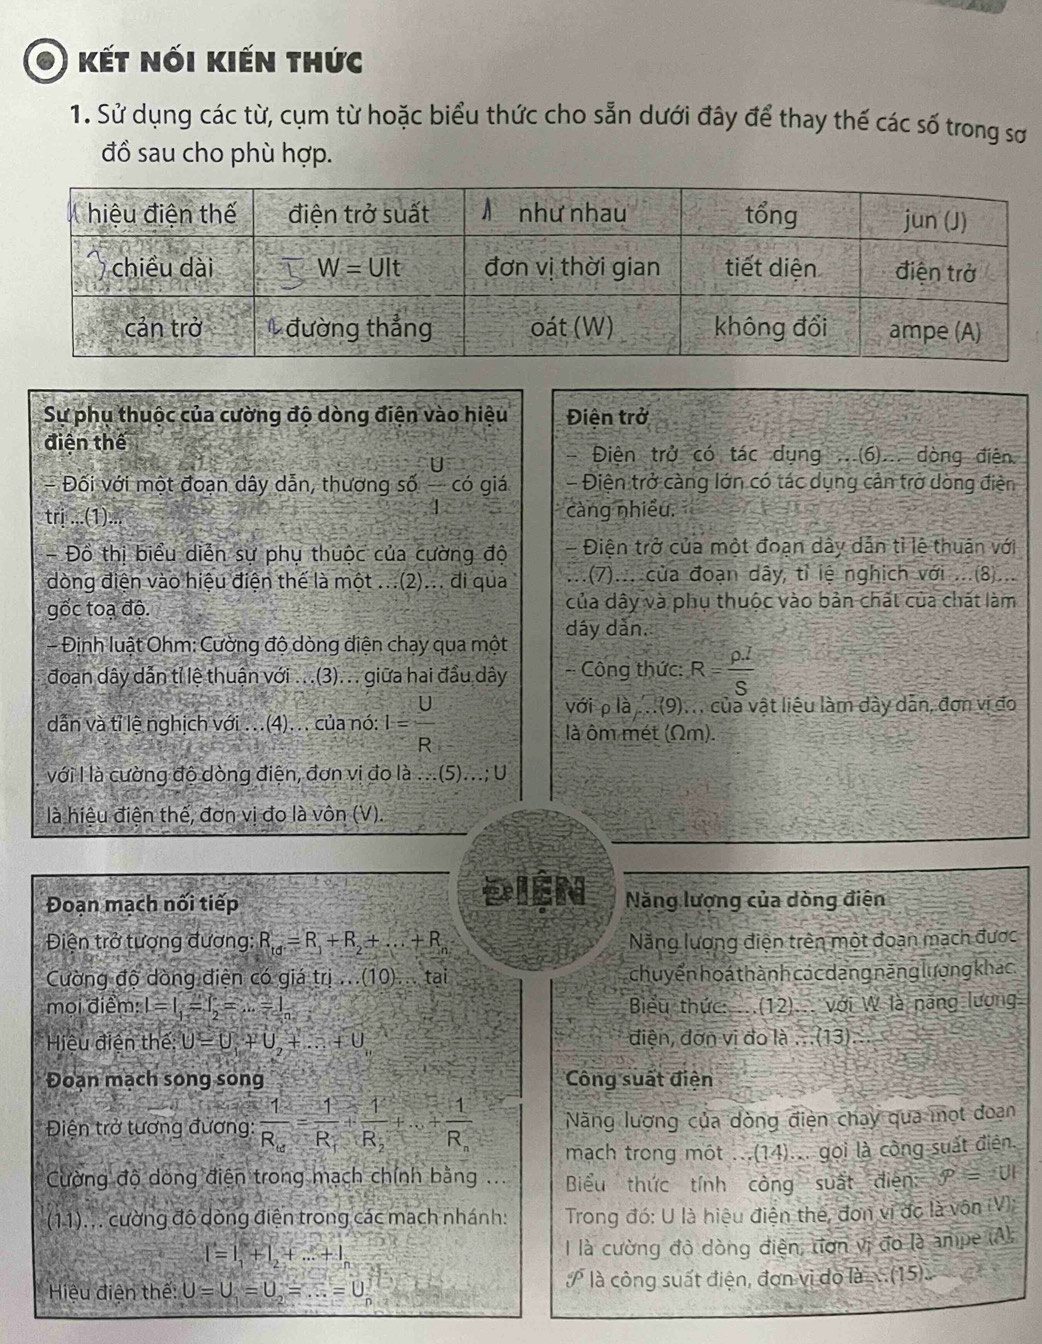 KẾT NỐI KIẾN THỨC
1. Sử dụng các từ, cụm từ hoặc biểu thức cho sẵn dưới đây để thay thế các số trong sơ
đồ sau cho phù hợp.
hiệu điện thế điện trở suất như nhau tổng jun (J)
chiều dài W = UIt đơn vị thời gian tiết diện điện trở
cản trở đường thẳng oát (W) không đổi ampe (A)
Sự phụ thuộc của cường độ dòng điện vào hiệu
điện thế
– Đối với một đoạn dây dẫn, thương số U/I có giá
trị ...(1)...
– Đồ thị biểu diễn sự phụ thuộc của cường độ
dòng điện vào hiệu điện thế là một ...(2)... đi qua
gốc toạ độ.
– Định luật Ohm: Cường độ dòng điện chạy qua một
đoạn dây dẫn tỉ lệ thuận với ...(3)... giữa hai đầu dây
dẫn và tỉ lệ nghịch với ...(4)... của nó: I = U/R
với I là cường độ dòng điện, đơn vị đo là ...(5)...; U
là hiệu điện thế, đơn vị đo là vôn (V).
Điện trở
– Điện trở có tác dụng ...(6)... dòng điện.
– Điện trở càng lớn có tác dụng cản trở dòng điện
càng nhiều.
– Điện trở của một đoạn dây dẫn tỉ lệ thuận với
...(7)... của đoạn dây, tỉ lệ nghịch với ...(8)...
của dây và phụ thuộc vào bản chất của chất làm
dây dẫn.
– Công thức: R = ρ.l/S
với ρ là ...(9)... của vật liệu làm dây dẫn, đơn vị đo
là ôm mét (Ωm).
ĐIỆN
Đoạn mạch nối tiếp
Điện trở tương đương: R_tđ = R₁ + R₂ + ... + Rₙ
Cường độ dòng điện có giá trị ...(10)... tại
mọi điểm: I = I₁ = I₂ = ... = Iₙ
Hiệu điện thế: U = U₁ + U₂ + ... + Uₙ
Đoạn mạch song song
Điện trở tương đương: 1/R_tđ = 1/R₁ + 1/R₂ + ... + 1/Rₙ
Cường độ dòng điện trong mạch chính bằng ...
(11)... cường độ dòng điện trong các mạch nhánh:
I = I₁ + I₂ + ... + Iₙ
Hiệu điện thế: U = U₁ = U₂ = ... = Uₙ
Năng lượng của dòng điện
Năng lượng điện trên một đoạn mạch được
chuyển hoá thành các dạng năng lượng khác.
Biểu thức: ...(12)... với W là năng lượng
điện, đơn vị đo là ...(13)...
Công suất điện
Năng lượng của dòng điện chạy qua một đoạn
mạch trong một ...(14)... gọi là công suất điện.
Biểu thức tính công suất điện: 𝒫 = UI
Trong đó: U là hiệu điện thế, đơn vị đo là vôn (V);
I là cường độ dòng điện, đơn vị đo là ampe (A);
𝒫 là công suất điện, đơn vị đo là ...(15)...